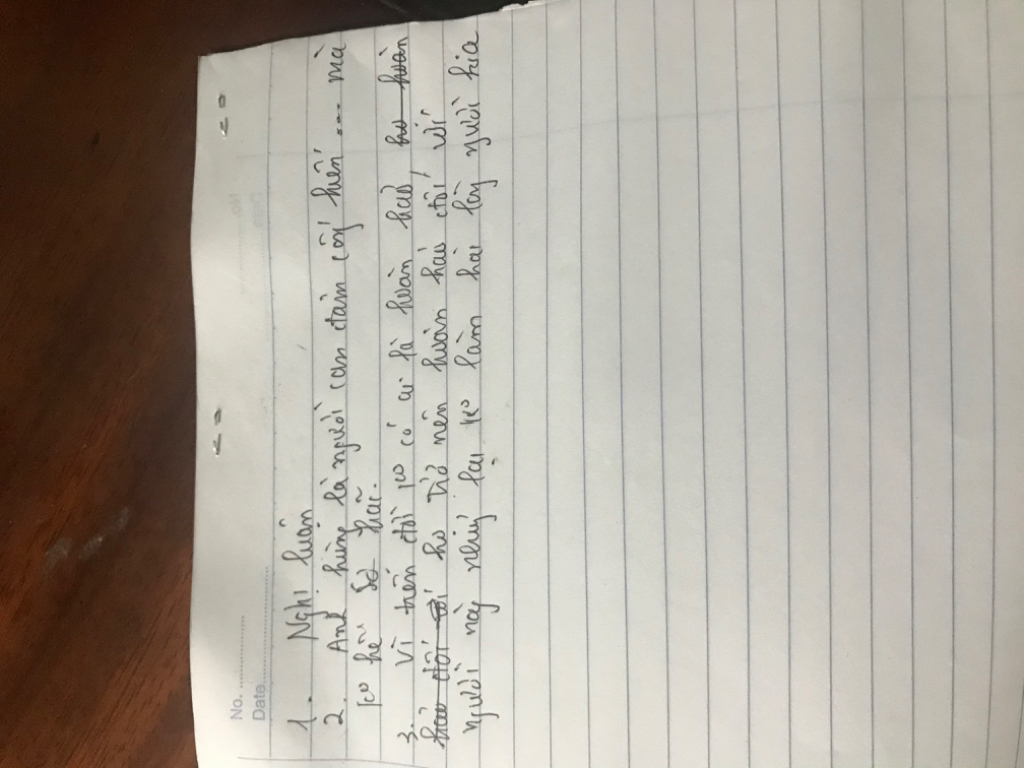 No. ................
Date ................
1. Nghị luận
2. Anh hùng là người can đảm cống hiến .... mà
ko hề sợ hãi.
3. Vì trên đời ko có ai là hoàn hảo, ho hoàn
hảo đối với họ Dở nên hoàn hảo đối với
người này nhưng lại ko làm hài lòng người kia